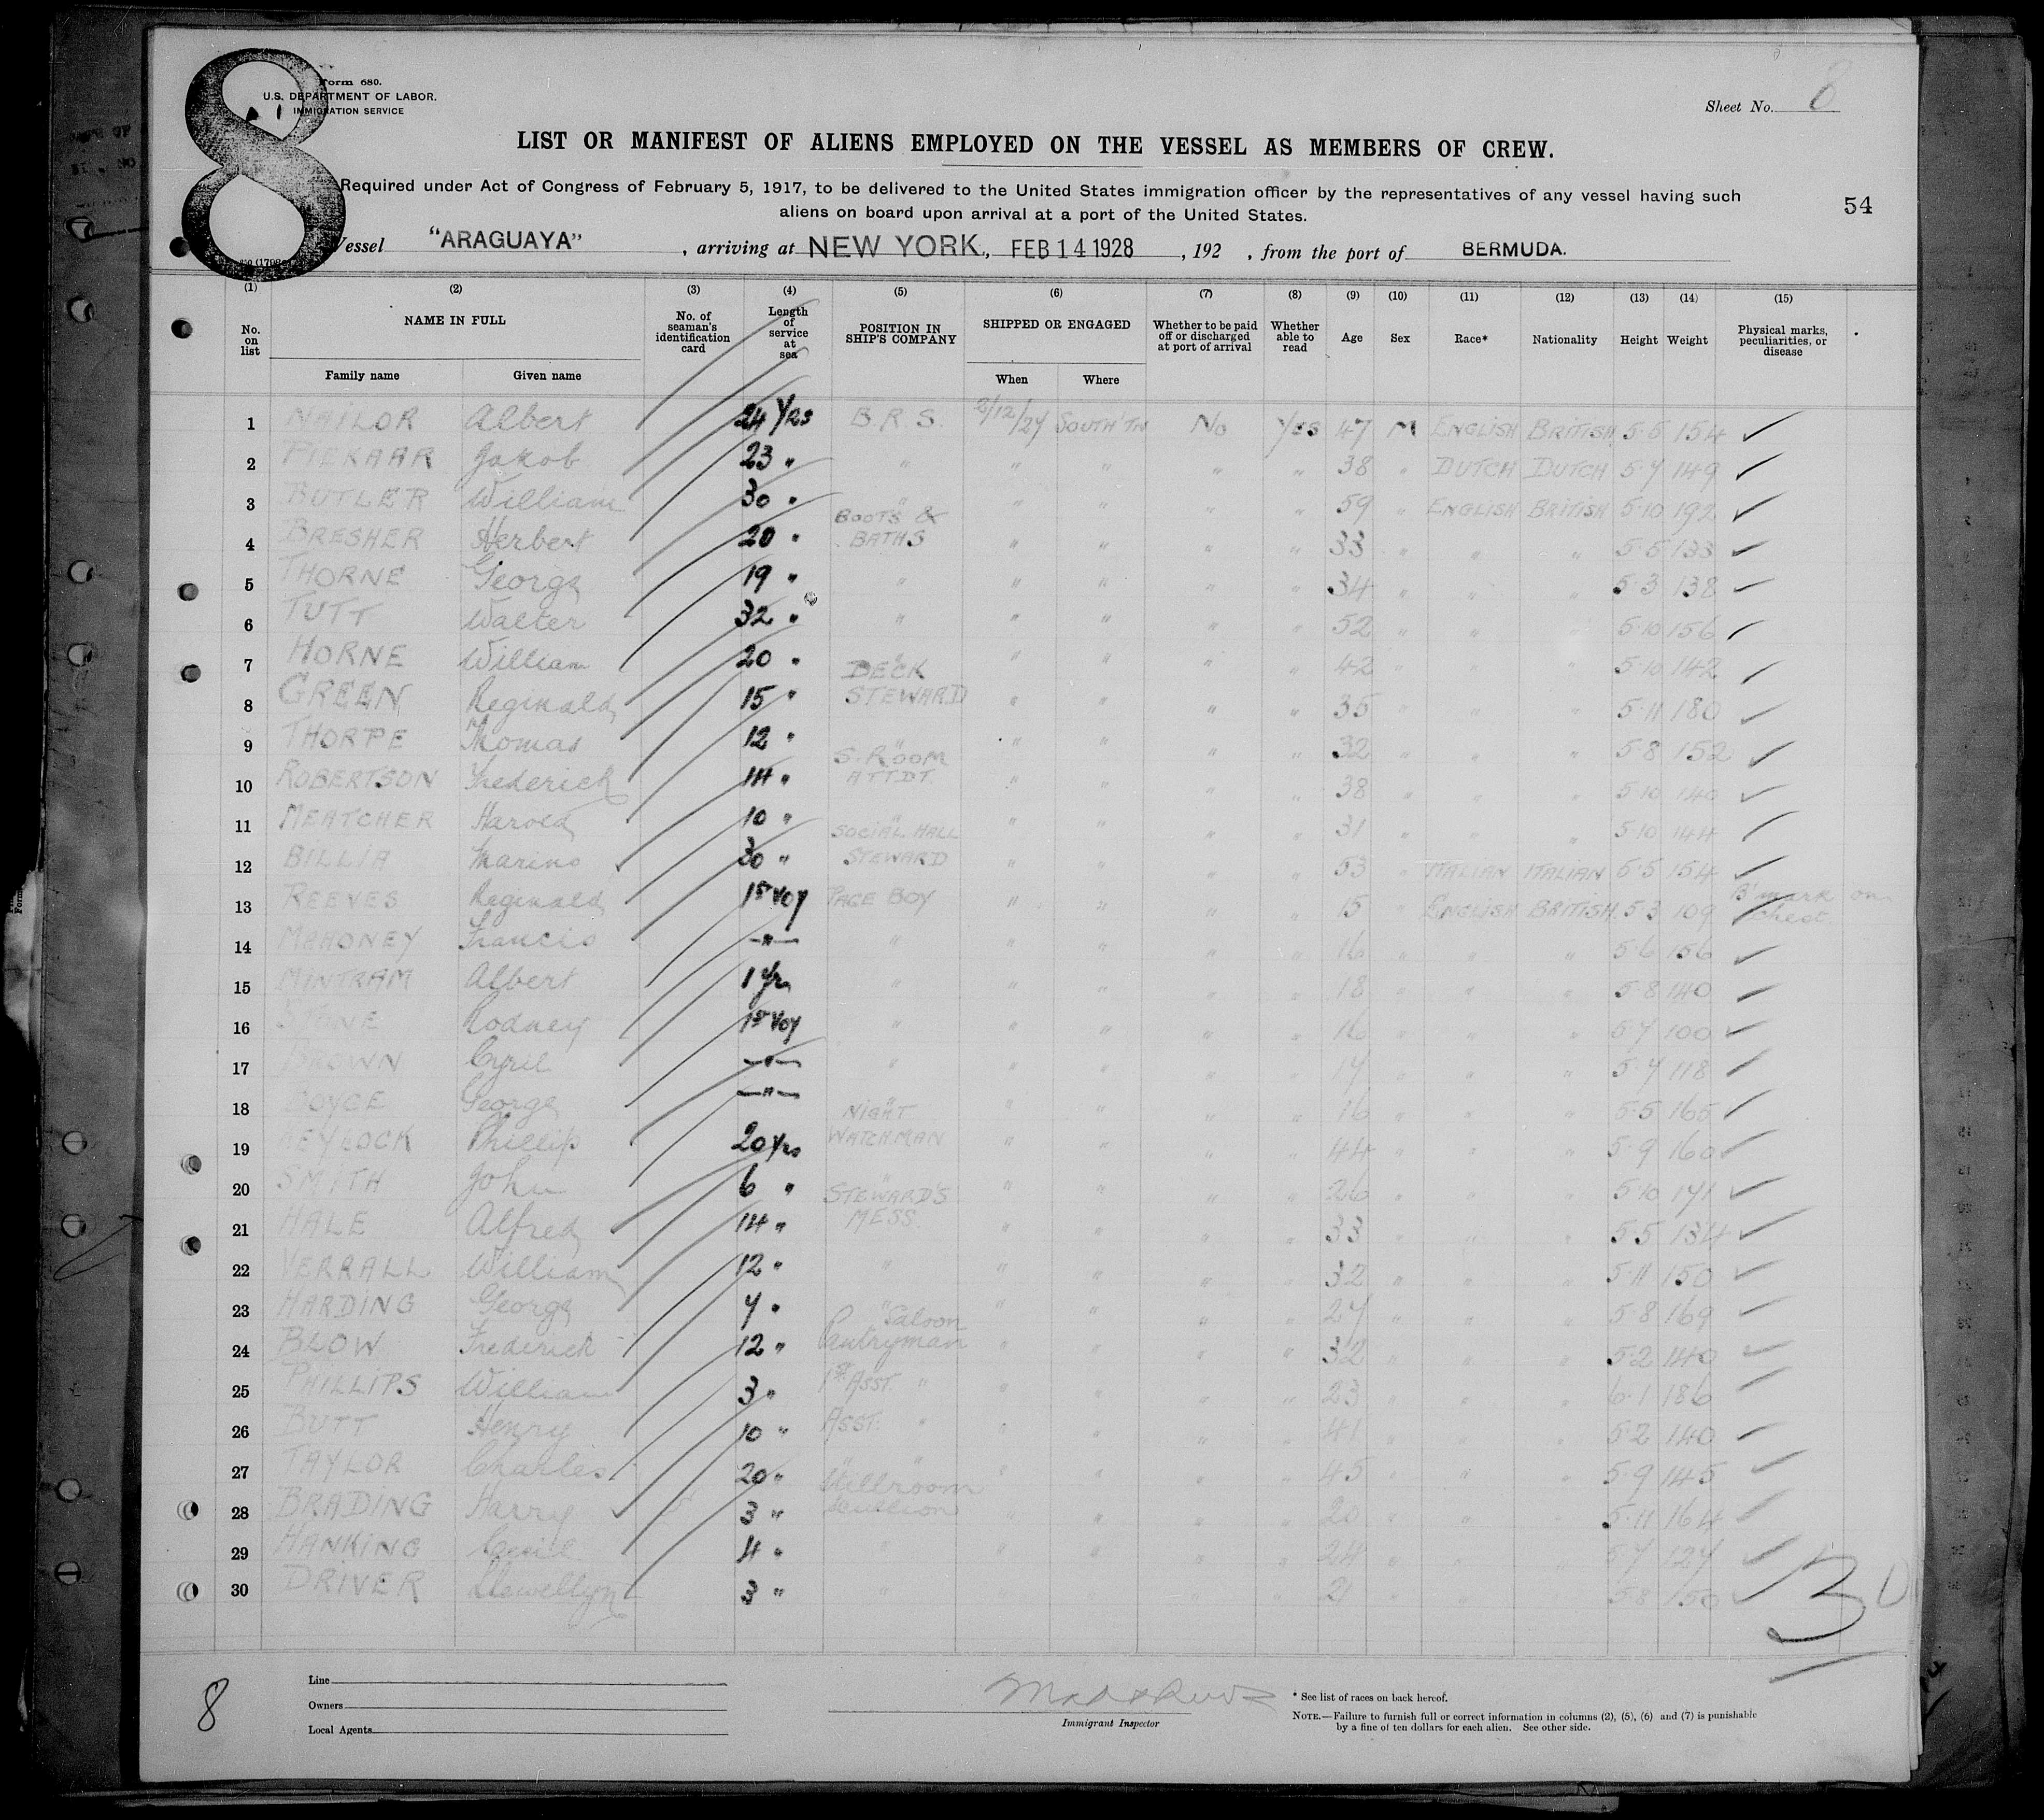 8
Form 680.
U.S. DEPARTMENT OF LABOR.
IMMIGRATION SERVICE
Sheet No. 8
LIST OR MANIFEST OF ALIENS EMPLOYED ON THE VESSEL AS MEMBERS OF CREW.
Required under Act of Congress of February 5, 1917, to be delivered to the United States immigration officer by the representatives of any vessel having such
aliens on board upon arrival at a port of the United States.
54
Vessel "ARAGUAYA", arriving at NEW YORK, FEB 14 1928, 192 , from the port of BERMUDA.
(1) (2) (3) (4) (5) (6) (7) (8) (9) (10) (11) (12) (13) (14) (15)
No. on list NAME IN FULL No. of seaman's identification card Length of service at sea POSITION IN SHIP'S COMPANY SHIPPED OR ENGAGED Whether to be paid off or discharged at port of arrival Whether able to read Age Sex Race* Nationality Height Weight Physical marks, peculiarities, or disease
Family name Given name When Where
1 NAILOR Albert 24 Yrs B.R.S. 2/12/27 SOUTH'TN No Yes 47 M ENGLISH BRITISH 5·5 154 ✓
2 PIEKAAR Jakob 23 " " " " " " 38 " DUTCH DUTCH 5·7 149 ✓
3 BUTLER William 30 " " " " " " 59 " ENGLISH BRITISH 5·10 192 ✓
4 BRESHER Herbert 20 " BOOTS & BATHS " " " " 33 " " " 5·5 133 ✓
5 THORNE George 19 " " " " " " 34 " " " 5·3 138 ✓
6 TUTT Walter 32 " " " " " " 52 " " " 5·10 156 ✓
7 HORNE William 20 " " " " " " 42 " " " 5·10 142 ✓
8 GREEN Reginald 15 " DECK STEWARD " " " " 35 " " " 5·11 180 ✓
9 THORPE Thomas 12 " " " " " " 32 " " " 5·8 152 ✓
10 ROBERTSON Frederick 14 " S. ROOM ATTDT. " " " " 38 " " " 5·10 140 ✓
11 MEATCHER Harold 10 " " " " " " 31 " " " 5·10 144 ✓
12 BILLIA Marino 30 " SOCIAL HALL STEWARD " " " " 53 " ITALIAN ITALIAN 5·5 154 ✓
13 REEVES Reginald 1st Voy PAGE BOY " " " " 15 " ENGLISH BRITISH 5·3 109 B'mark on chest
14 MAHONEY Francis —"— " " " " " 16 " " " 5·6 156 ✓
15 MINTRAM Albert 1 Yr " " " " " 18 " " " 5·8 140 ✓
16 Rodney 1st Voy " " " " " 16 " " " 5·7 100 ✓
17 BROWN Cyril —"— " " " " " 17 " " " 5·7 118 ✓
18 BOYCE George —"— " " " " " 16 " " " 5·5 165 ✓
19 Phillip 20 Yrs NIGHT WATCHMAN " " " " 44 " " " 5·9 160 ✓
20 SMITH John 6 " " " " " " 26 " " " 5·10 171 ✓
21 HALE Alfred 14 " STEWARD'S MESS. " " " " 33 " " " 5·5 134 ✓
22 VERRALL William 12 " " " " " " 32 " " " 5·11 150 ✓
23 HARDING George 7 " " " " " " 27 " " " 5·8 169 ✓
24 BLOW Frederick 12 " Saloon Pantryman " " " " 32 " " " 5·2 140 ✓
25 PHILLIPS William 3 " 1st ASST. " " " " " 23 " " " 6·1 186 ✓
26 BUTT Henry 10 " ASST. " " " " " 41 " " " 5·2 140 ✓
27 TAYLOR Charles 20 " " " " " " " 45 " " " 5·9 145 ✓
28 BRADING Harry 3 " Scullion " " " " 20 " " " 5·11 164 ✓
29 HANKING Cecil 4 " " " " " " 24 " " " 5·7 127 ✓
30 DRIVER Llewellyn 3 " " " 21 " " " 5·8 150 ✓
30
8
Line
Owners
Local Agents
Immigrant Inspector
* See list of races on back hereof.
NOTE.—Failure to furnish full or correct information in columns (2), (5), (6) and (7) is punishable
by a fine of ten dollars for each alien. See other side.